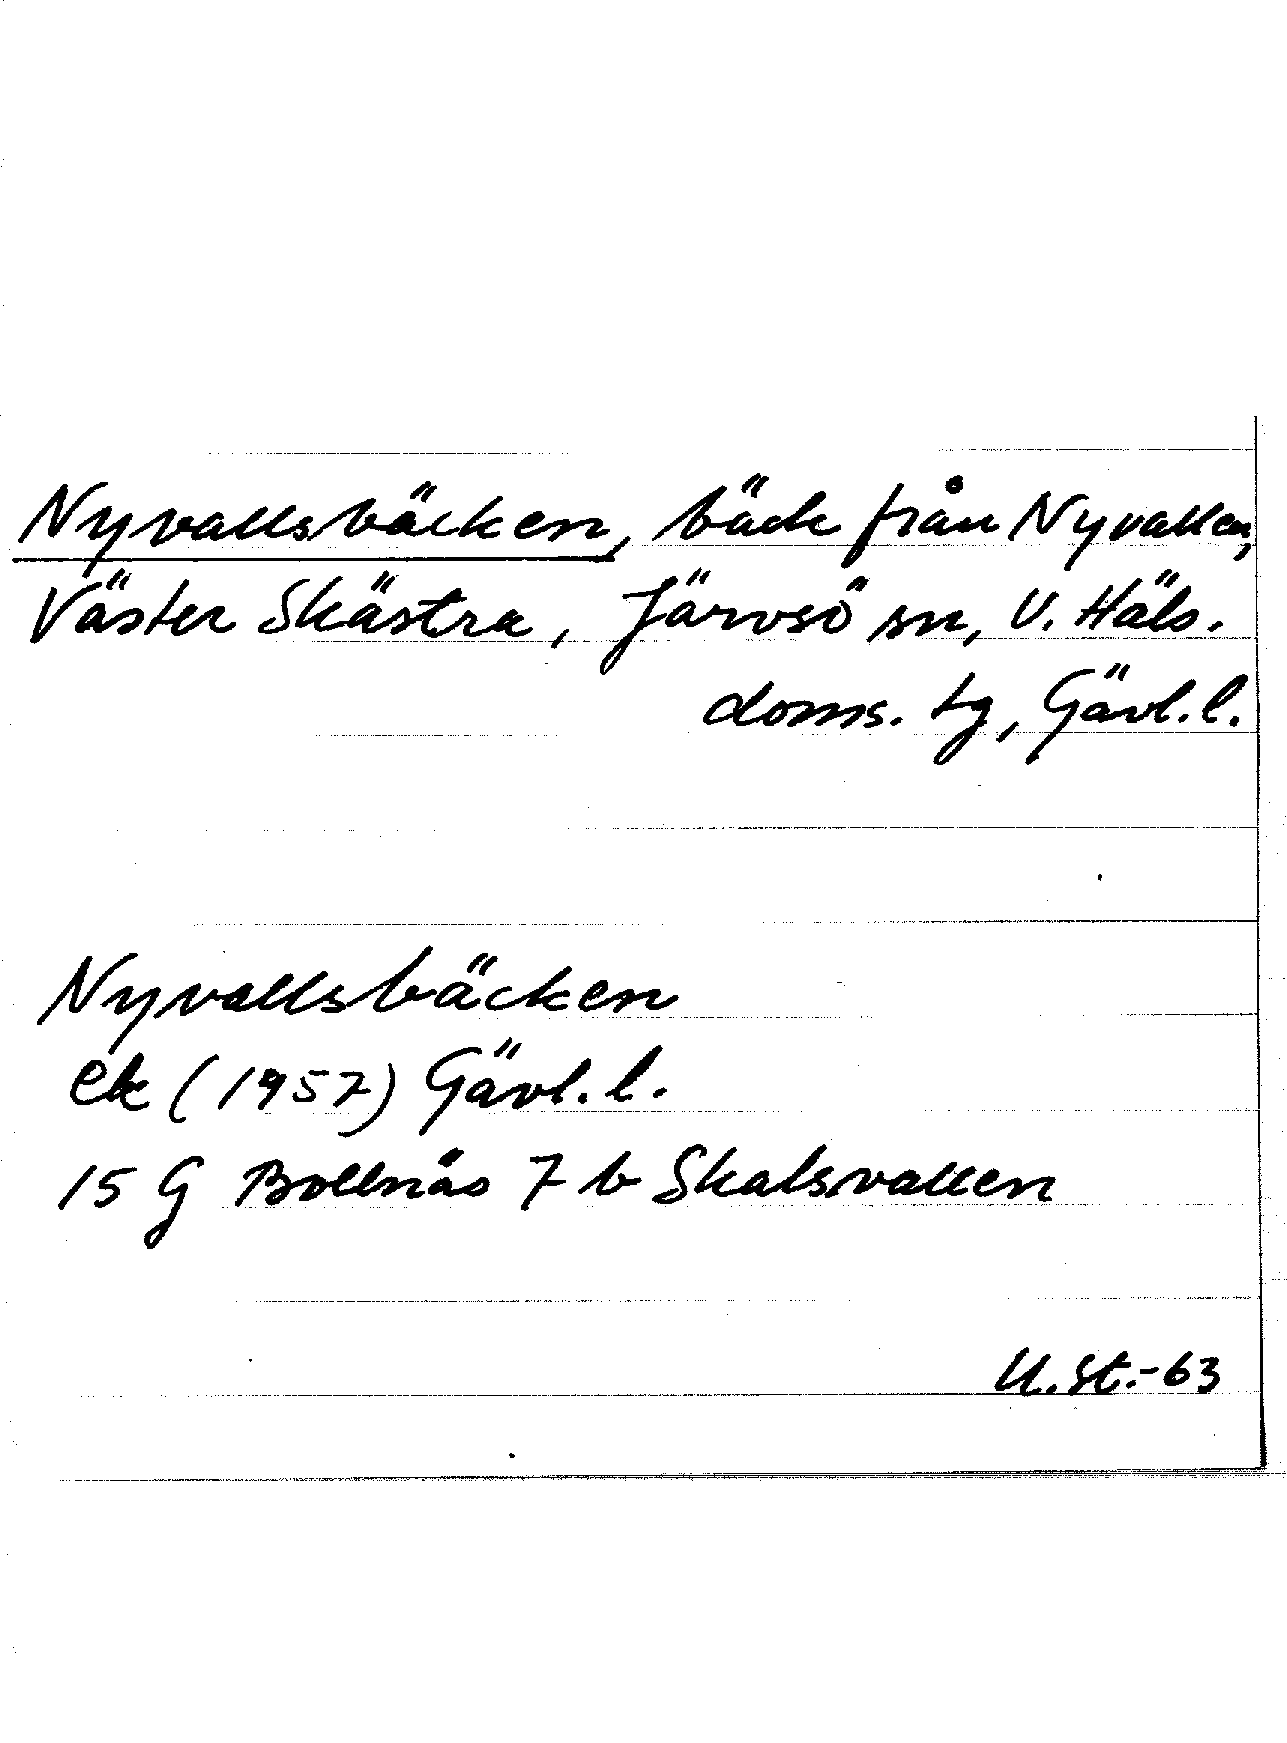 Nyvallsbäcken, bäck från Nyvallen,
Väster Skästra, Järvsö sn, V. Häls.
doms. tg, Gävl. l.
Nyvallsbäcken
ek (1957) Gävl. l.
15 G Bollnäs 7 b Skalsvallen
U. St.-63